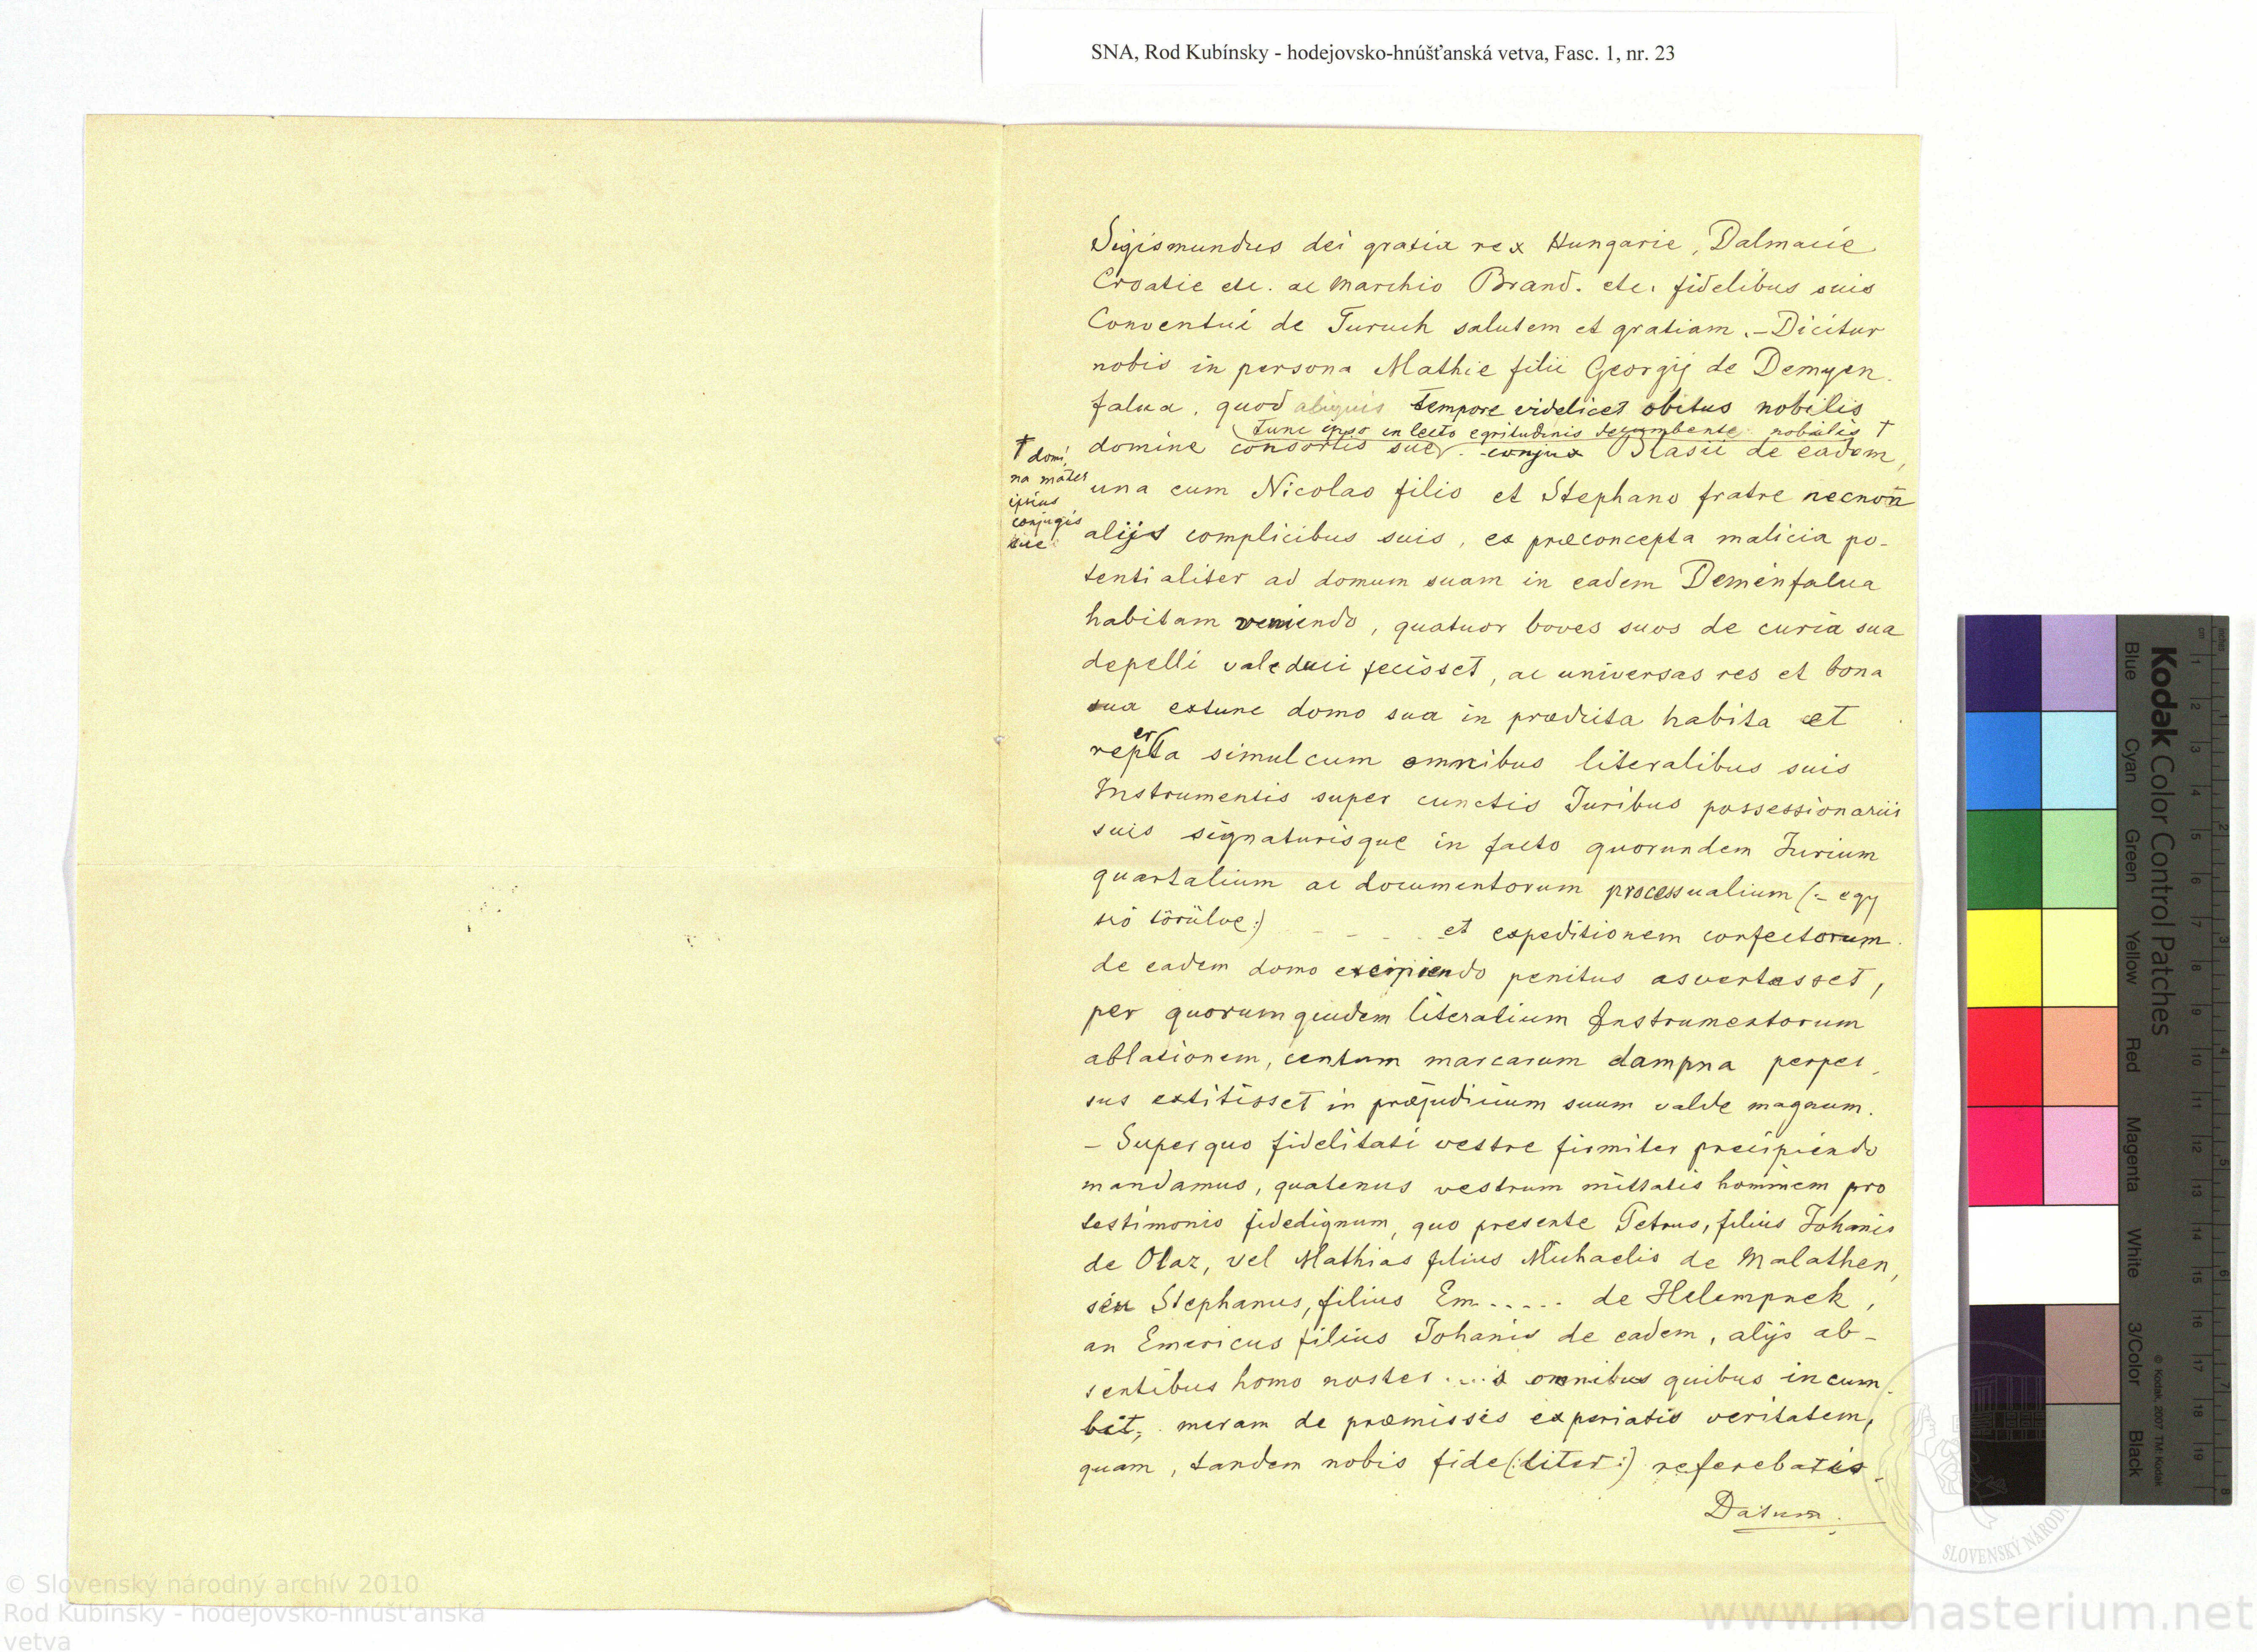 SNA, Rod Kubínsky - hodejovsko-hnúšťanská vetva, Fasc. 1, nr. 23
Sigismundus dei gratia rex Hungarie, Dalmacie
Croatie etc. ac Marchio Brand. etc. fidelibus suis
Conventui de Turuch salutem et gratiam. – Dicitur
nobis in persona Mathie filii Georgij de Demyen
falua, quod tempore videlicet obitus nobilis
tunc ipso in lecto egritudinis decumbente nobilis †
domine consortis sue conjux Blasii de eadem,
† domi
na mater
ipsius
conjugis
sue
una cum Nicolao filio et Stephano fratre necnon
alijs complicibus suis, ex præconcepta malicia po-
tentialiter ad domum suam in eadem Deménfalua
habitam veniendo, quatuor boves suos de curia sua
depelli valeduci fecisset, ac universas res et bona
sua extunc domo sua in prædicta habita et
reperta simulcum omnibus literalibus suis
Instrumentis super cunctis Juribus possessionariis
suis signaturisque in facto quorundem Jurium
quartalium ac documentorum processualium (:= egy
szó törülve:) - - - - et expeditionem confectorum
de eadem domo excipiendo penitus asvertasset,
per quorumquidem literalium Instrumentorum
ablationem, centum marcarum dampna perpes
sus extitisset in præjudicium suum valde magnum.
– Super quo fidelitati vestre firmiter precipiendo
mandamus, quatenus vestrum mittatis hominem pro
testimonio fidedignum, quo presente Petrus, filius Johanis
de Olaz, vel Mathias filius Michaelis de Malathen,
séu Stephanus, filius Em..... de Helempnek,
an Emericus filius Johanis de eadem, alijs ab-
sentibus homo noster ....s omnibus quibus incum
bit, meram de præmissis experiatis veritatem,
quam, tandem nobis fide(:liter:) referebatis.
Datum.
Kodak Color Control Patches
Blue
Cyan
Green
Yellow
Red
Magenta
White
3/Color
Black
© Kodak, 2007 TM: Kodak
SLOVENSKÝ NÁROD
© Slovenský národný archív 2010
Rod Kubínsky - hodejovsko-hnúšťanská
vetva
www.monasterium.net